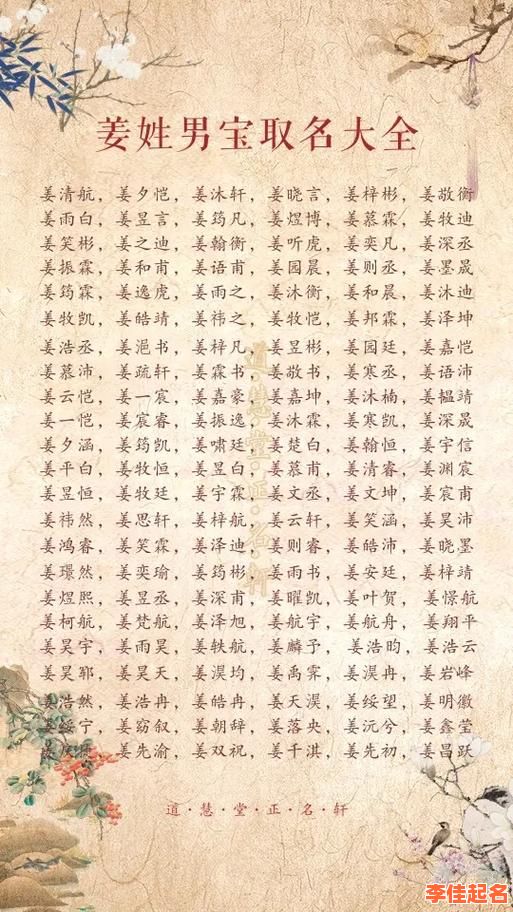 姜姓男宝取名大全
姜清航，姜夕恺，姜沐轩，姜晓言，姜梓彬，姜敬衡
姜雨白，姜昱言，姜筠凡，姜煜博，姜慕霖，姜牧迪
姜笑彬，姜之迪，姜翰衡，姜听虎，姜奕凡，姜深丞
姜振霖，姜和甫，姜语甫，姜园晨，姜则丞，姜墨晟
姜筠霖，姜逸虎，姜雨之，姜沐衡，姜和晨，姜沐迪
姜牧凯，姜皓靖，姜祎之，姜牧恺，姜邦霖，姜泽坤
姜浩丞，姜浥书，姜梓凡，姜昱彬，姜园廷，姜嘉恺
姜慕沛，姜疏轩，姜霖书，姜敬书，姜寒丞，姜语沛
姜云恺，姜一宸，姜嘉豪，姜嘉坤，姜沐楠，姜韫靖
姜一恺，姜宸睿，姜振逸，姜沐霖，姜寒凯，姜深晟
姜夕涵，姜筠凯，姜啸廷，姜楚白，姜翰恒，姜宇信
姜平白，姜牧恒，姜昱白，姜慕甫，姜清睿，姜渊宸
姜昱恒，姜牧廷，姜宇霖，姜文丞，姜文坤，姜宸甫
姜祎然，姜思轩，姜梓航，姜云轩，姜笑涵，姜昊沛
姜鸿睿，姜笑霖，姜泽迪，姜则睿，姜皓沛，姜晓墨
姜璟然，姜奕瑜，姜筠彬，姜雨书，姜安廷，姜梓靖
姜煜熙，姜昱丞，姜深甫，姜曜凯，姜叶贺，姜憬航
姜柯航，姜梵航，姜泽旭，姜航宇，姜航舟，姜翔平
姜昊宇，姜雨昊，姜轶航，姜麟予，姜浩昀，姜浩云
姜昊郓，姜昊天，姜淏均，姜禹霁，姜淏冉，姜岩峰
姜浩然，姜浩冉，姜皓冉，姜天淏，姜绥望，姜明徽
姜绥宁，姜窈叙，姜朝辞，姜落央，姜沅兮，姜鑫莹
姜，姜先渝，姜双祝，姜千淇，姜先初，姜昌跃
道·慧·堂·正·名·轩
道·慧·堂·正·名·轩
李佳起名